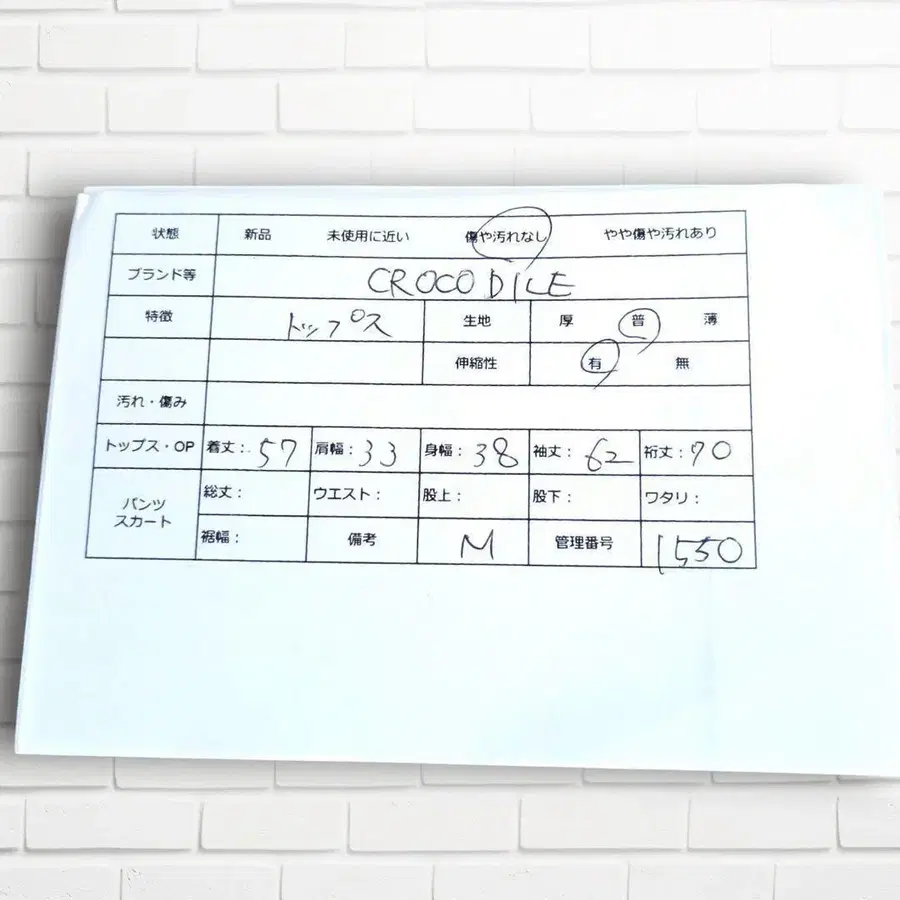 状態 新品 未使用に近い 傷や汚れなし やや傷や汚れあり
ブランド等 CROCODILE
特徴 トップス 生地 厚 普 薄
伸縮性 有 無
汚れ・傷み
トップス・OP 着丈：57 肩幅：33 身幅：38 袖丈：62 裄丈：70
パンツ
スカート
総丈： ウエスト： 股上： 股下： ワタリ：
裾幅： 備考 M 管理番号 1550